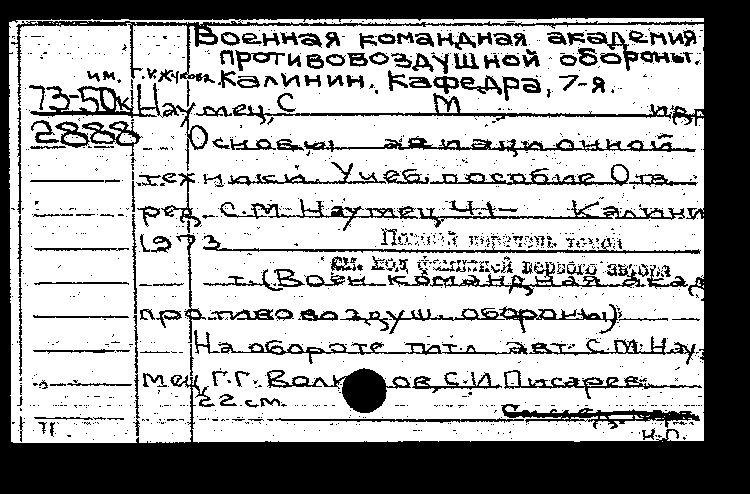 Военная командная академия
противовоздушной обороны.
им. Г.К. Жукова. Калинин. Кафедра, 7-я.
73-50к Наумец, С М и др
2888 Основы авиационной
техники. Учеб. пособие Отв.
ред. С.М. Наумец Ч.1- Калини
1973 Полный перечень томов
см. под фамилией первого автора
т. (Воен командная акад
противовоздуш. обороны)
На обороте тит.л авт. С.М. Нау-
мец, Г.Г. Волков, С.И. Писарев.
22 см.
См. след. карт.
Н.П.